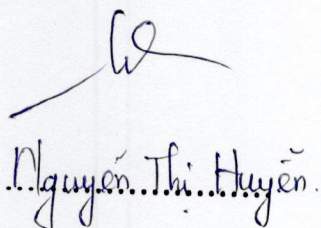 Nguyễn Thị Huyền.